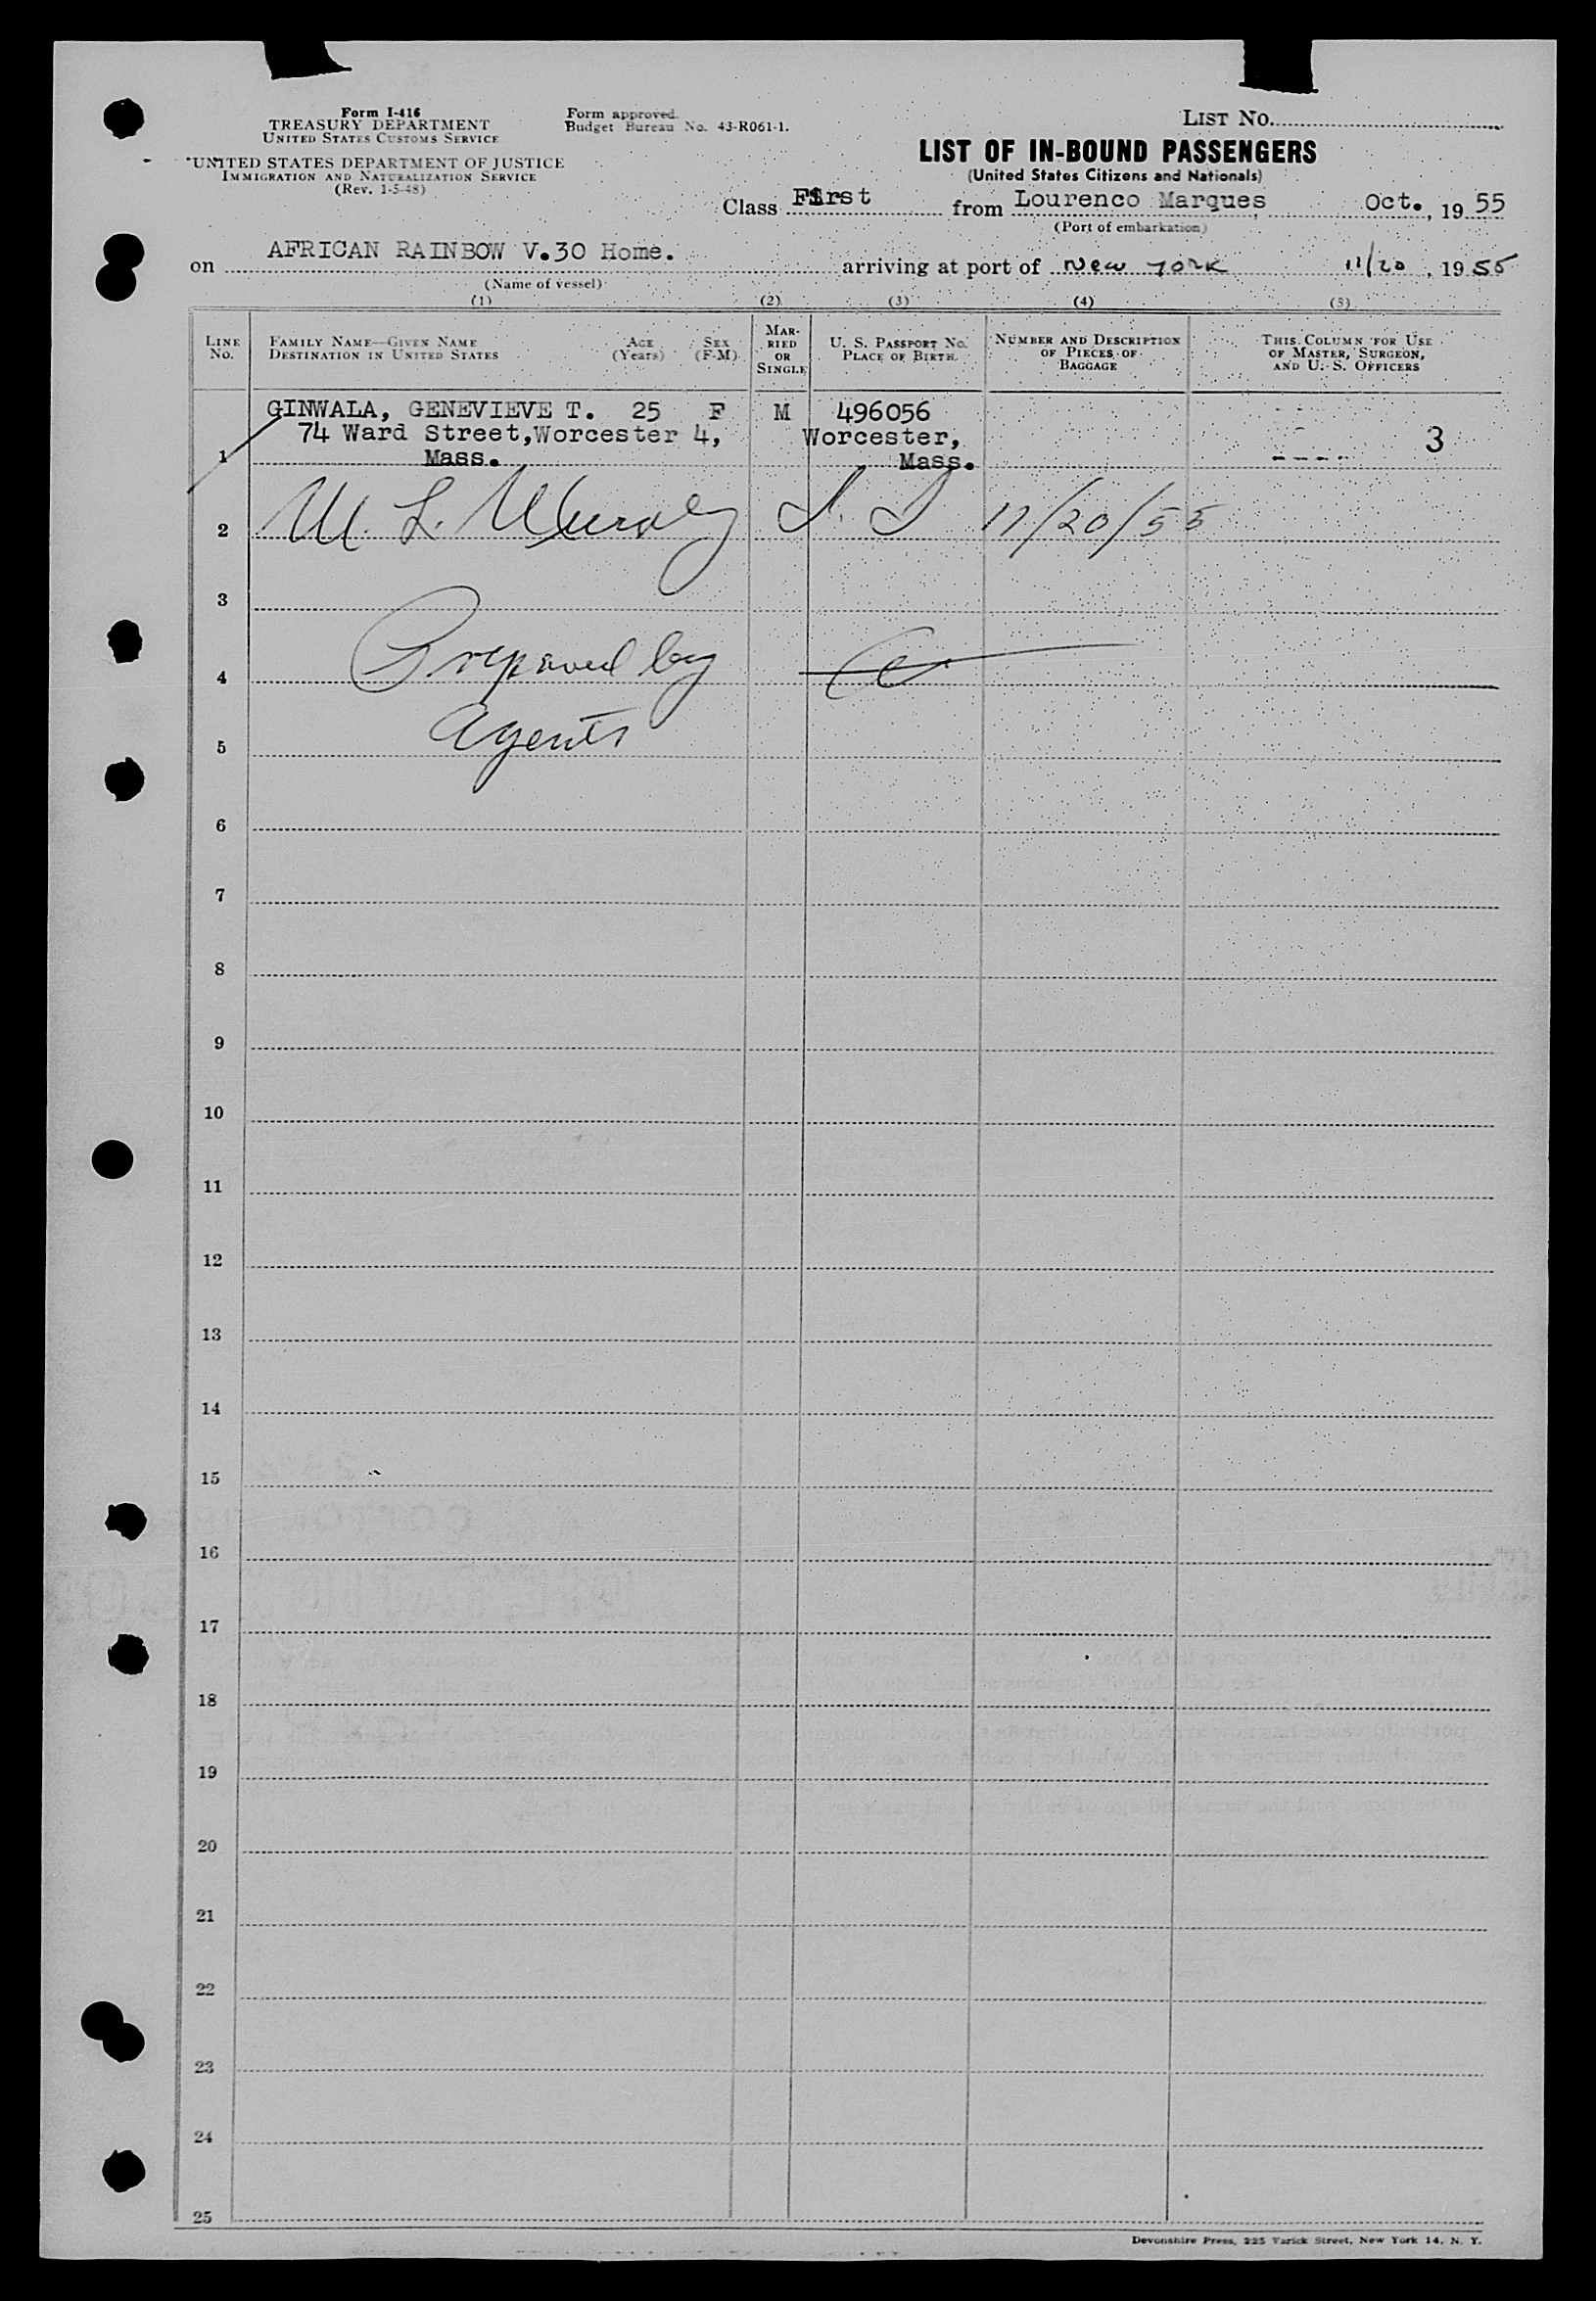 Form I-416
TREASURY DEPARTMENT
UNITED STATES CUSTOMS SERVICE
UNITED STATES DEPARTMENT OF JUSTICE
IMMIGRATION AND NATURALIZATION SERVICE
(Rev. 1-5-48)
Form approved.
Budget Bureau No. 43-R061-1.
LIST NO.
LIST OF IN-BOUND PASSENGERS
(United States Citizens and Nationals)
Class First from Lourenco Marques Oct., 19 55
(Port of embarkation)
on AFRICAN RAINBOW V.30 Home. arriving at port of New York 11/20, 19 55
(Name of vessel)
(1) (2) (3) (4) (5)
LINE No.
FAMILY NAME—GIVEN NAME
DESTINATION IN UNITED STATES
AGE (Years)
SEX (F-M)
MARRIED OR SINGLE
U. S. PASSPORT No.
PLACE OF BIRTH
NUMBER AND DESCRIPTION OF PIECES OF BAGGAGE
THIS COLUMN FOR USE OF MASTER, SURGEON, AND U. S. OFFICERS
GINWALA, GENEVIEVE T. 25 F M 496056
74 Ward Street, Worcester 4, Worcester,
1 Mass. Mass. ---- 3
2 M. L. 11/20/55
3
4 Prepared by
5 Agents
6
7
8
9
10
11
12
13
14
15
16
17
18
19
20
21
22
23
24
25
Devonshire Press, 225 Varick Street, New York 14, N. Y.